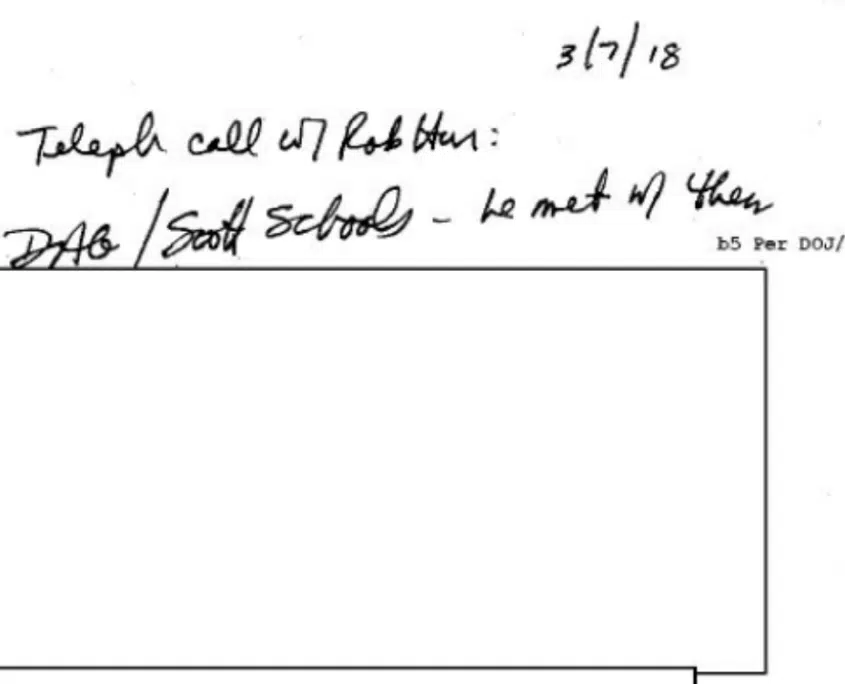 3/7/18
Teleph call w/ Rob Hur:
DAG / Scott Schools - he met w/ them
b5 Per DOJ/